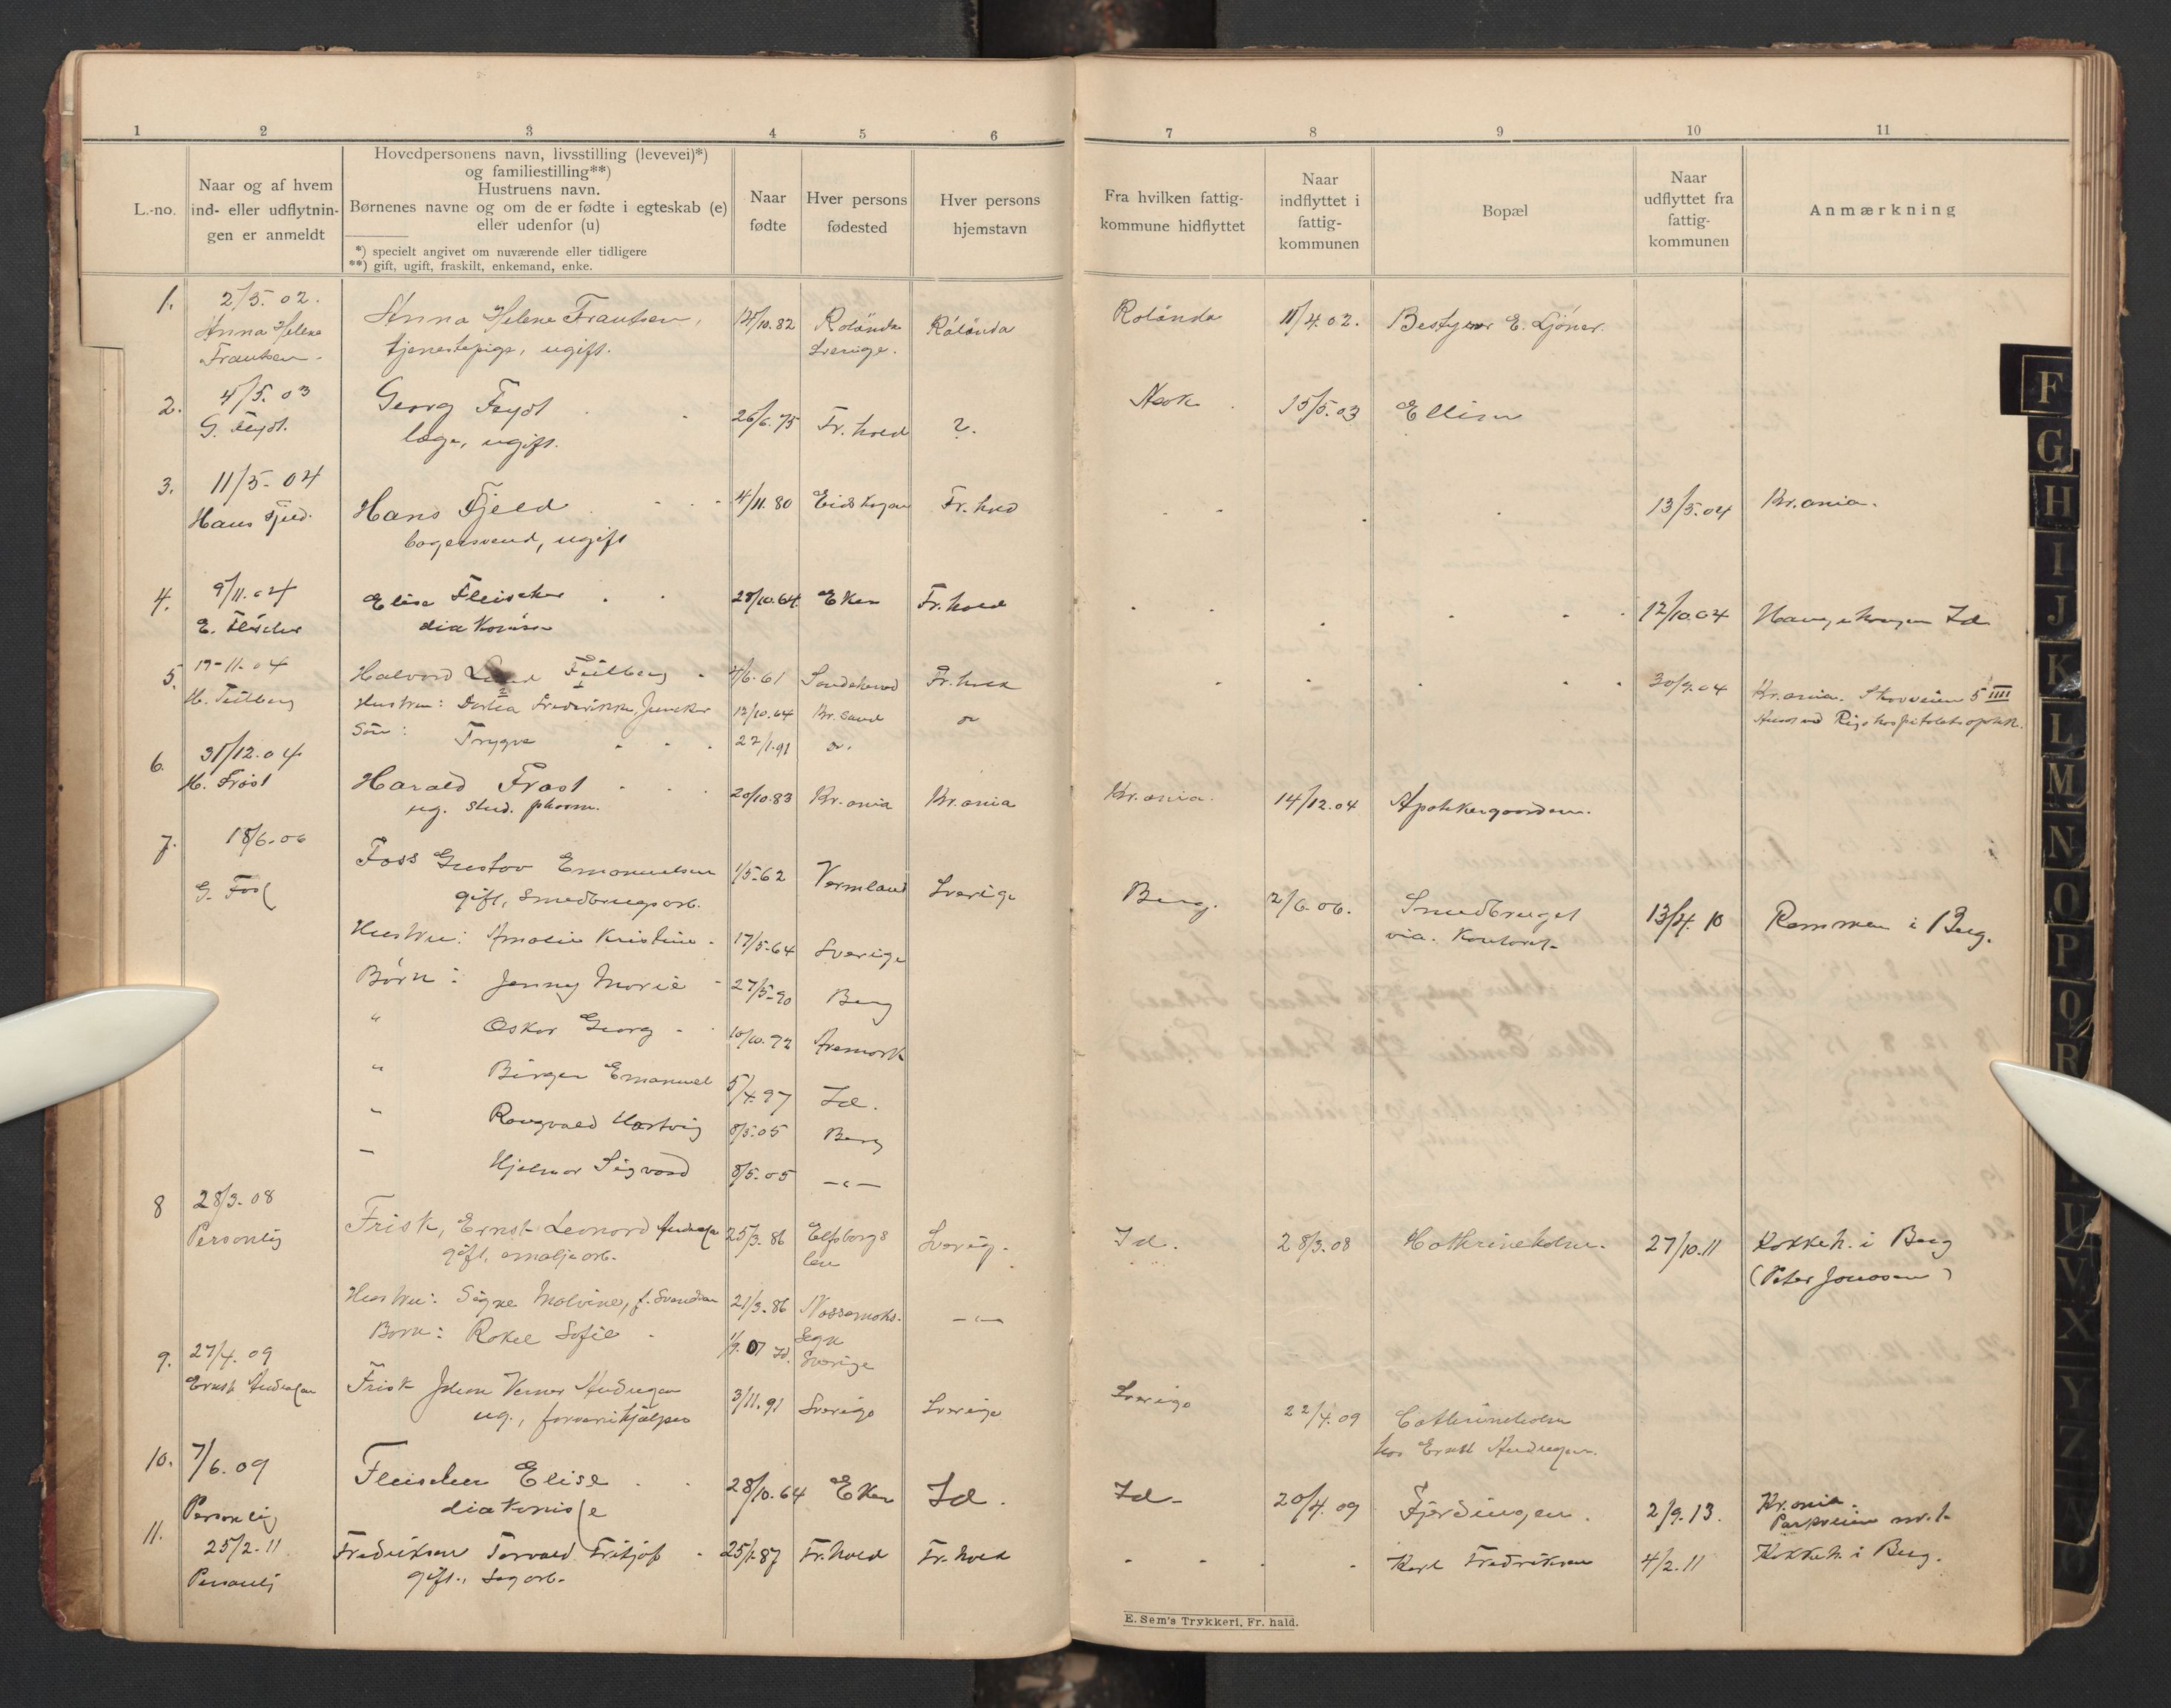 1 2 3 4 5 6 7 8 9 10 11
L.-no.
Naar og af hvem
ind- eller udflytnin-
gen er anmeldt
Hovedpersonens navn, livsstilling (levevei)*)
og familiestilling**)
Hustruens navn.
Børnenes navne og om de er fødte i egteskab (e)
eller udenfor (u)
*) specielt angivet om nuværende eller tidligere
**) gift, ugift, fraskilt, enkemand, enke.
Naar
fødte
Hver persons
fødested
Hver persons
hjemstavn
Fra hvilken fattig-
kommune hidflyttet
Naar
indflyttet i
fattig-
kommunen
Bopæl
Naar
udflyttet fra
fattig-
kommunen
Anmærkning
1. 2/5. 02.
Anna Helene
Frantsen
Anna Helene Frantsen, 10.82 Rolända Rolända Rolända 11/4.02. Bestyrer E.
tjenestepige, ugift. Sverige.
2. 4/5. 03
G. Feydt.
Georg Feydt 26/6.75 Fr.hald ? 15/5.03
læge, ugift.
3. 11/5- 04
Hans Fjeld.
Hans Fjeld 4/11.80 Eidskogen Fr.hald 13/5.04 Kr.ania.
bagersvend, ugift
4. 9/11.04
E. Fleischer
Elise Fleischer 28/10.64 Eker Fr.hald 12/10.04 Id
diakonisse
5. 19-11.04
Halvord 4/6.61 Fr.hald 30/9.04 Kr.ania. 5 IIII
Hustru: Dortea Frederikke Juncker 12/10.64 Kr.sand do Rigshospitalets apothek.
Søn: Trygve 27/1.91 do.
6. 31/12.04
H. Frost
Harald Frost 20/10.83 Kr.ania Kr.ania Kr.ania. 14/12.04 Apothekergaarden.
ug. stud. pharm.
7. 18/6.06
G. Foss
Foss Gustav Emanuelsen 1/5-62 Vermland Sverige Berg. 2/6.06. Smedbruget 13/4.10 Remmen i Berg.
gift, Smedbrugsarb. via. Kontoret
Hustru: Amalie Kristine 17/5-64 Sverige
Børn: Jenny Marie 27/5-90 Berg
" Oskar Georg 10/10.92 Aremark
" Birger Emanuel 5/4.97 Id.
" Rangvald Hartvig 8/5.05 Berg
– Hjalmar Sigvard 8/5-05 —"—
8 28/3-08
Personlig
Frisk, Ernst Leonard 25/3.86 Elfsborgs Sverige. Id. 28/3.08 Kathrineholm. 27/10.11 Kokkeh. i Berg
gift, emaljearb. len (Peter Jonassen)
Hustru: Signe Malvine, f. Svendsen 21/3.86 —"—
Barn: Rakel Sofie 07 Id. Sverige
9. 27/4.09
Frisk Johan Verner Andresen 3/11.91 Sverige Sverige Sverige 22/4.09 Cathrineholm
ug., hos Ernst Andresen.
10. 7/6.09
Personlig
Fleischer Elise 28/10.64 Eker Id. Id 20/4.09 Fjerdingen. 2/9.13. Kr.ania.
diakonisse Parkveien nr.1
11. 25/2-11
Personlig
Fredriksen Torvald Fritjof 25/1-87 Fr.hald Fr.hald Karl Fredriksen 4/2.11 Kokkeh. i Berg.
gift., Sagarb.
E. Sem's Trykkeri, Fr. hald.
F
G
H
I
J
K
L
M
N
O
P
Q
R
U
V
X
Y
Z